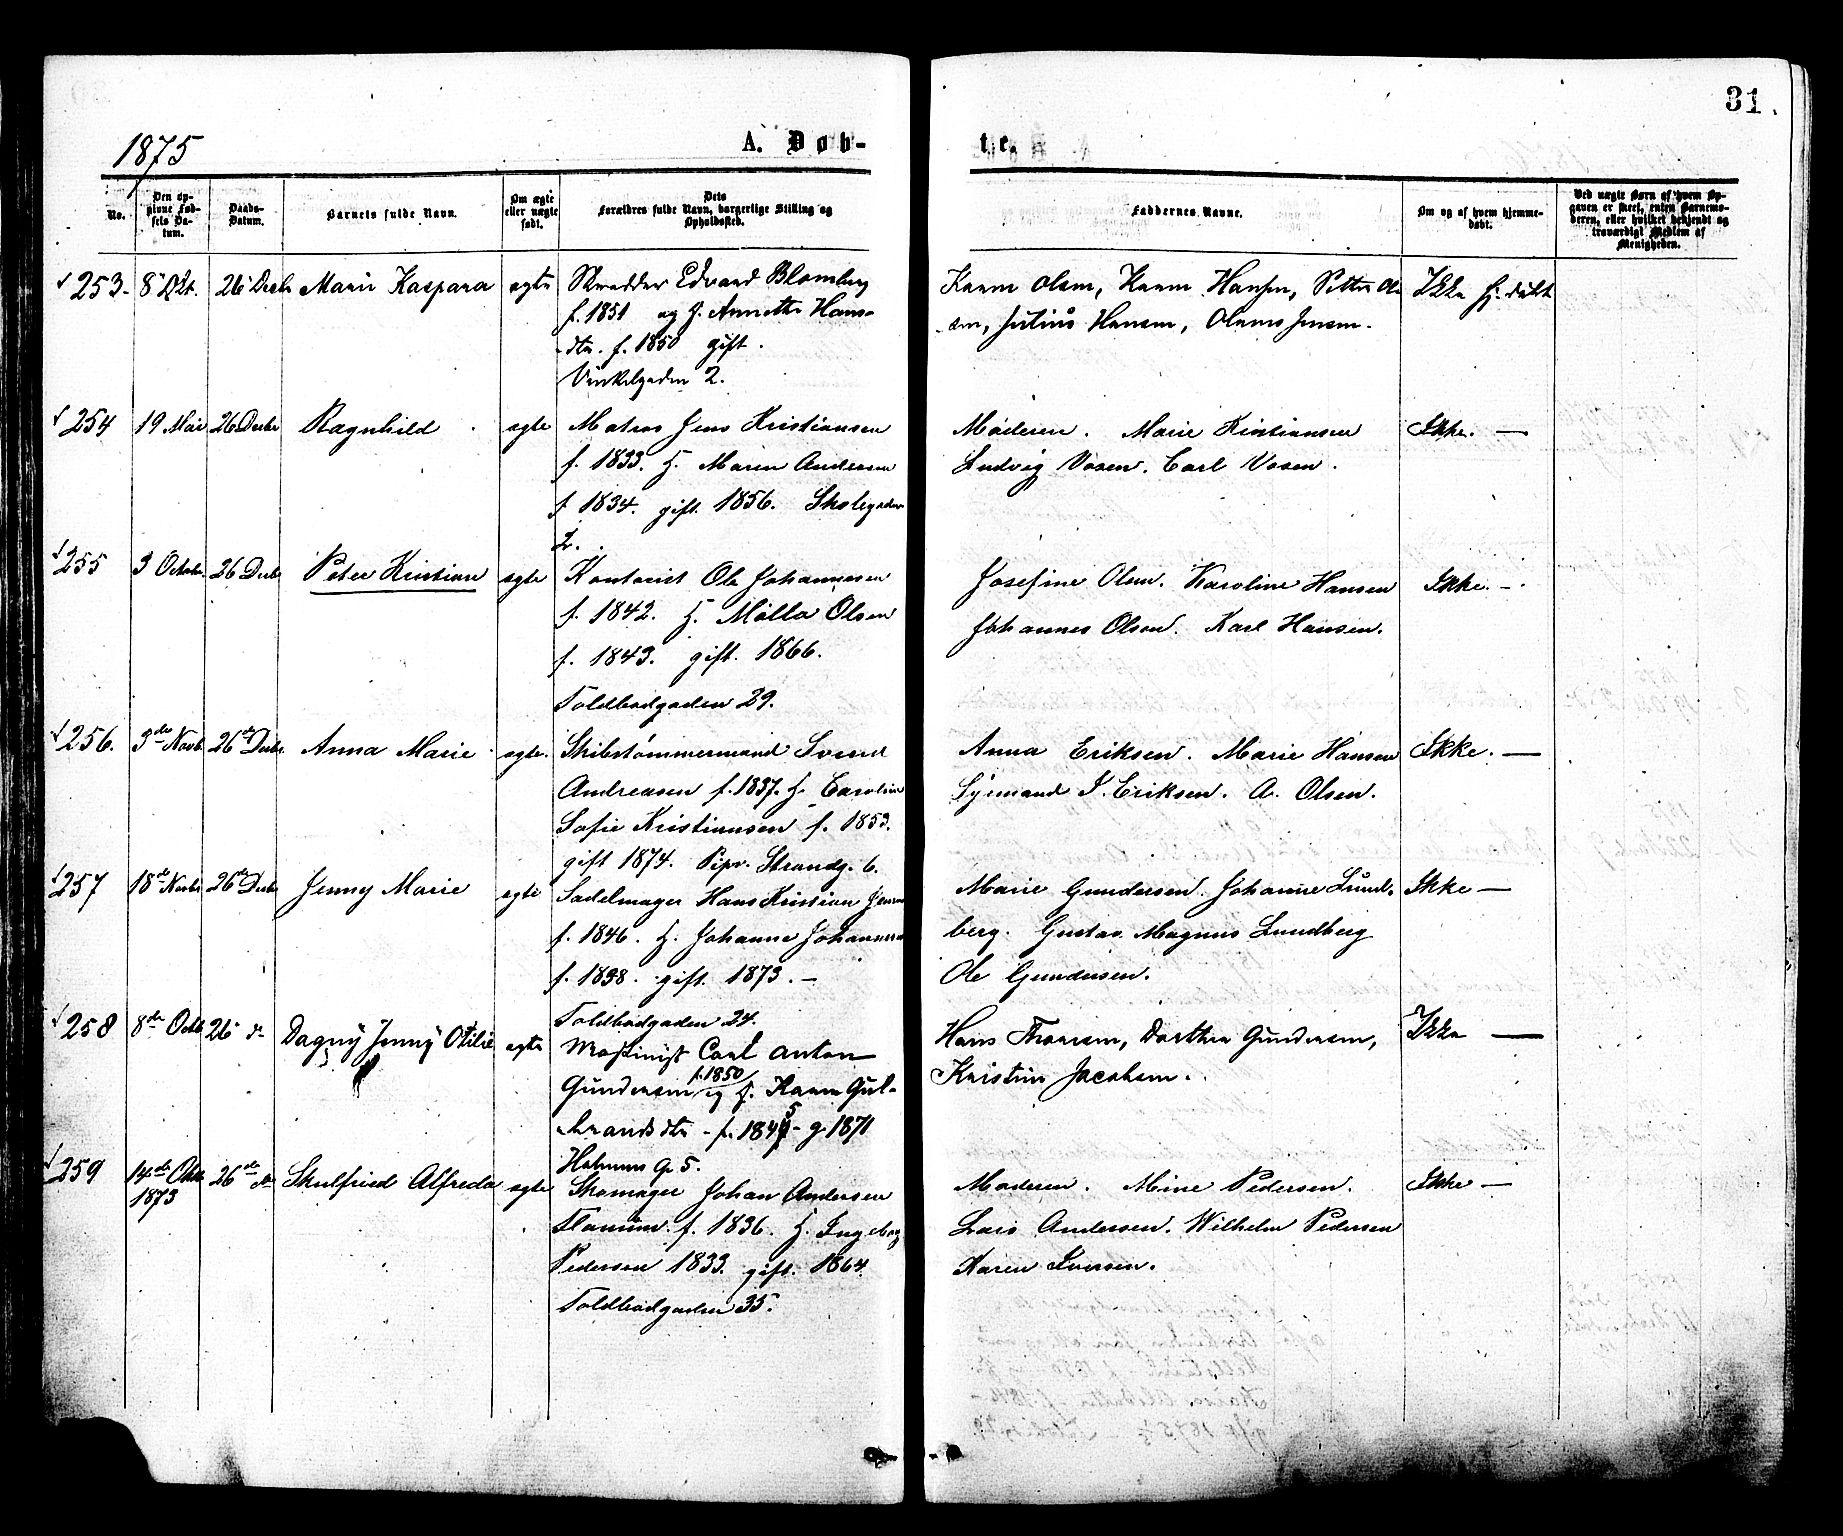 31.
1875
A. Døb-
te.
No.
Den opgivne Fødsels Datum.
Daabs-Datum.
Barnets fulde Navn.
Om ægte eller uægte født.
Dets Forældres fulde Navn, borgerlige Stilling og Opholdssted.
Faddernes Navne.
Om og af hvem hjemmedøbt.
Ved uægte Børn af hvem Opgaven er skeet, enten Barnemoderen, eller hvilket bekjendt og troværdigt Medlem af Menigheden.
253. 8 Okt. 26 Decbr Marie Kaspara ægte Skrædder Edvard Blomberg
f. 1851 og H. Annethe Hans-
dtr. f. 1850 gift.
Vinkelgaden 2.
Karen Olsen, Karen Hansen, Petter Ol-
sen, Julius Hansen, Jensen.
Ikke hj. døbt
254 19 Mai 26 Decbr Ragnhild ægte Matros Jens Kristiansen
f. 1833. H. Maren Andersen
f 1834. gift. 1856. Skolegaden
2.
Moderen. Marie Kristiansen
Ludvig Vosen. Carl Vosen.
Ikke. —
255 3 Octobr. 26 Decbr Peter Kristian ægte Kontorist Ole Johannesen
f. 1842. H. Målla Olsen
f. 1843. gift. 1866.
Toldbodgaden 29.
Josefine Olsen. Karoline Hansen
Johannes Olsen. Karl Hansen.
Ikke. —
256. 3de Novb. 26de Decbr. Anna Marie ægte. Skibstømmermand Svend
Andreasen f. 1837. H. Caroline
Sofie Kristiansen f. 1853.
gift 1874. Piperv. Strandg. 6.
Anna Eriksen. Marie Hansen
Sømand J. Eriksen. A. Olsen.
Ikke. —
257 18de Novbr 26de Decbr Jenny Marie ægte Sadelmager Hans Kristian Jensen
f. 1846. H. Johanne Johannesen
f. 1838. gift. 1873. —
Toldbodgaden 24.
Marie Gundersen. Johanne Lund-
berg. Gustav Magnus Lundberg
Ole Gundersen.
Ikke —
258 8de Octb 26 d Dagny Jenny Otilie ægte Maskinist Carl Anton
Gundersen f. 1850 og H. Karen Gul-
brandsdtr - f. 1845 - g. 1871
Holmens G. 5.
Hans Thoresen, Dorthea Gundersen,
Kristine Jacobsen.
Ikke —
259 14de Oktbr 1873 26de d. Skulfried Alfreda ægte Skomager Johan Andersen
f. 1836. H. Ingeborg
Pedersen 1833. gift. 1864.
Toldbodgaden 35.
Moderen. Mine Pedersen.
Lars Andersen. Wilhelm Pedersen
Karen Iversen.
Ikke —